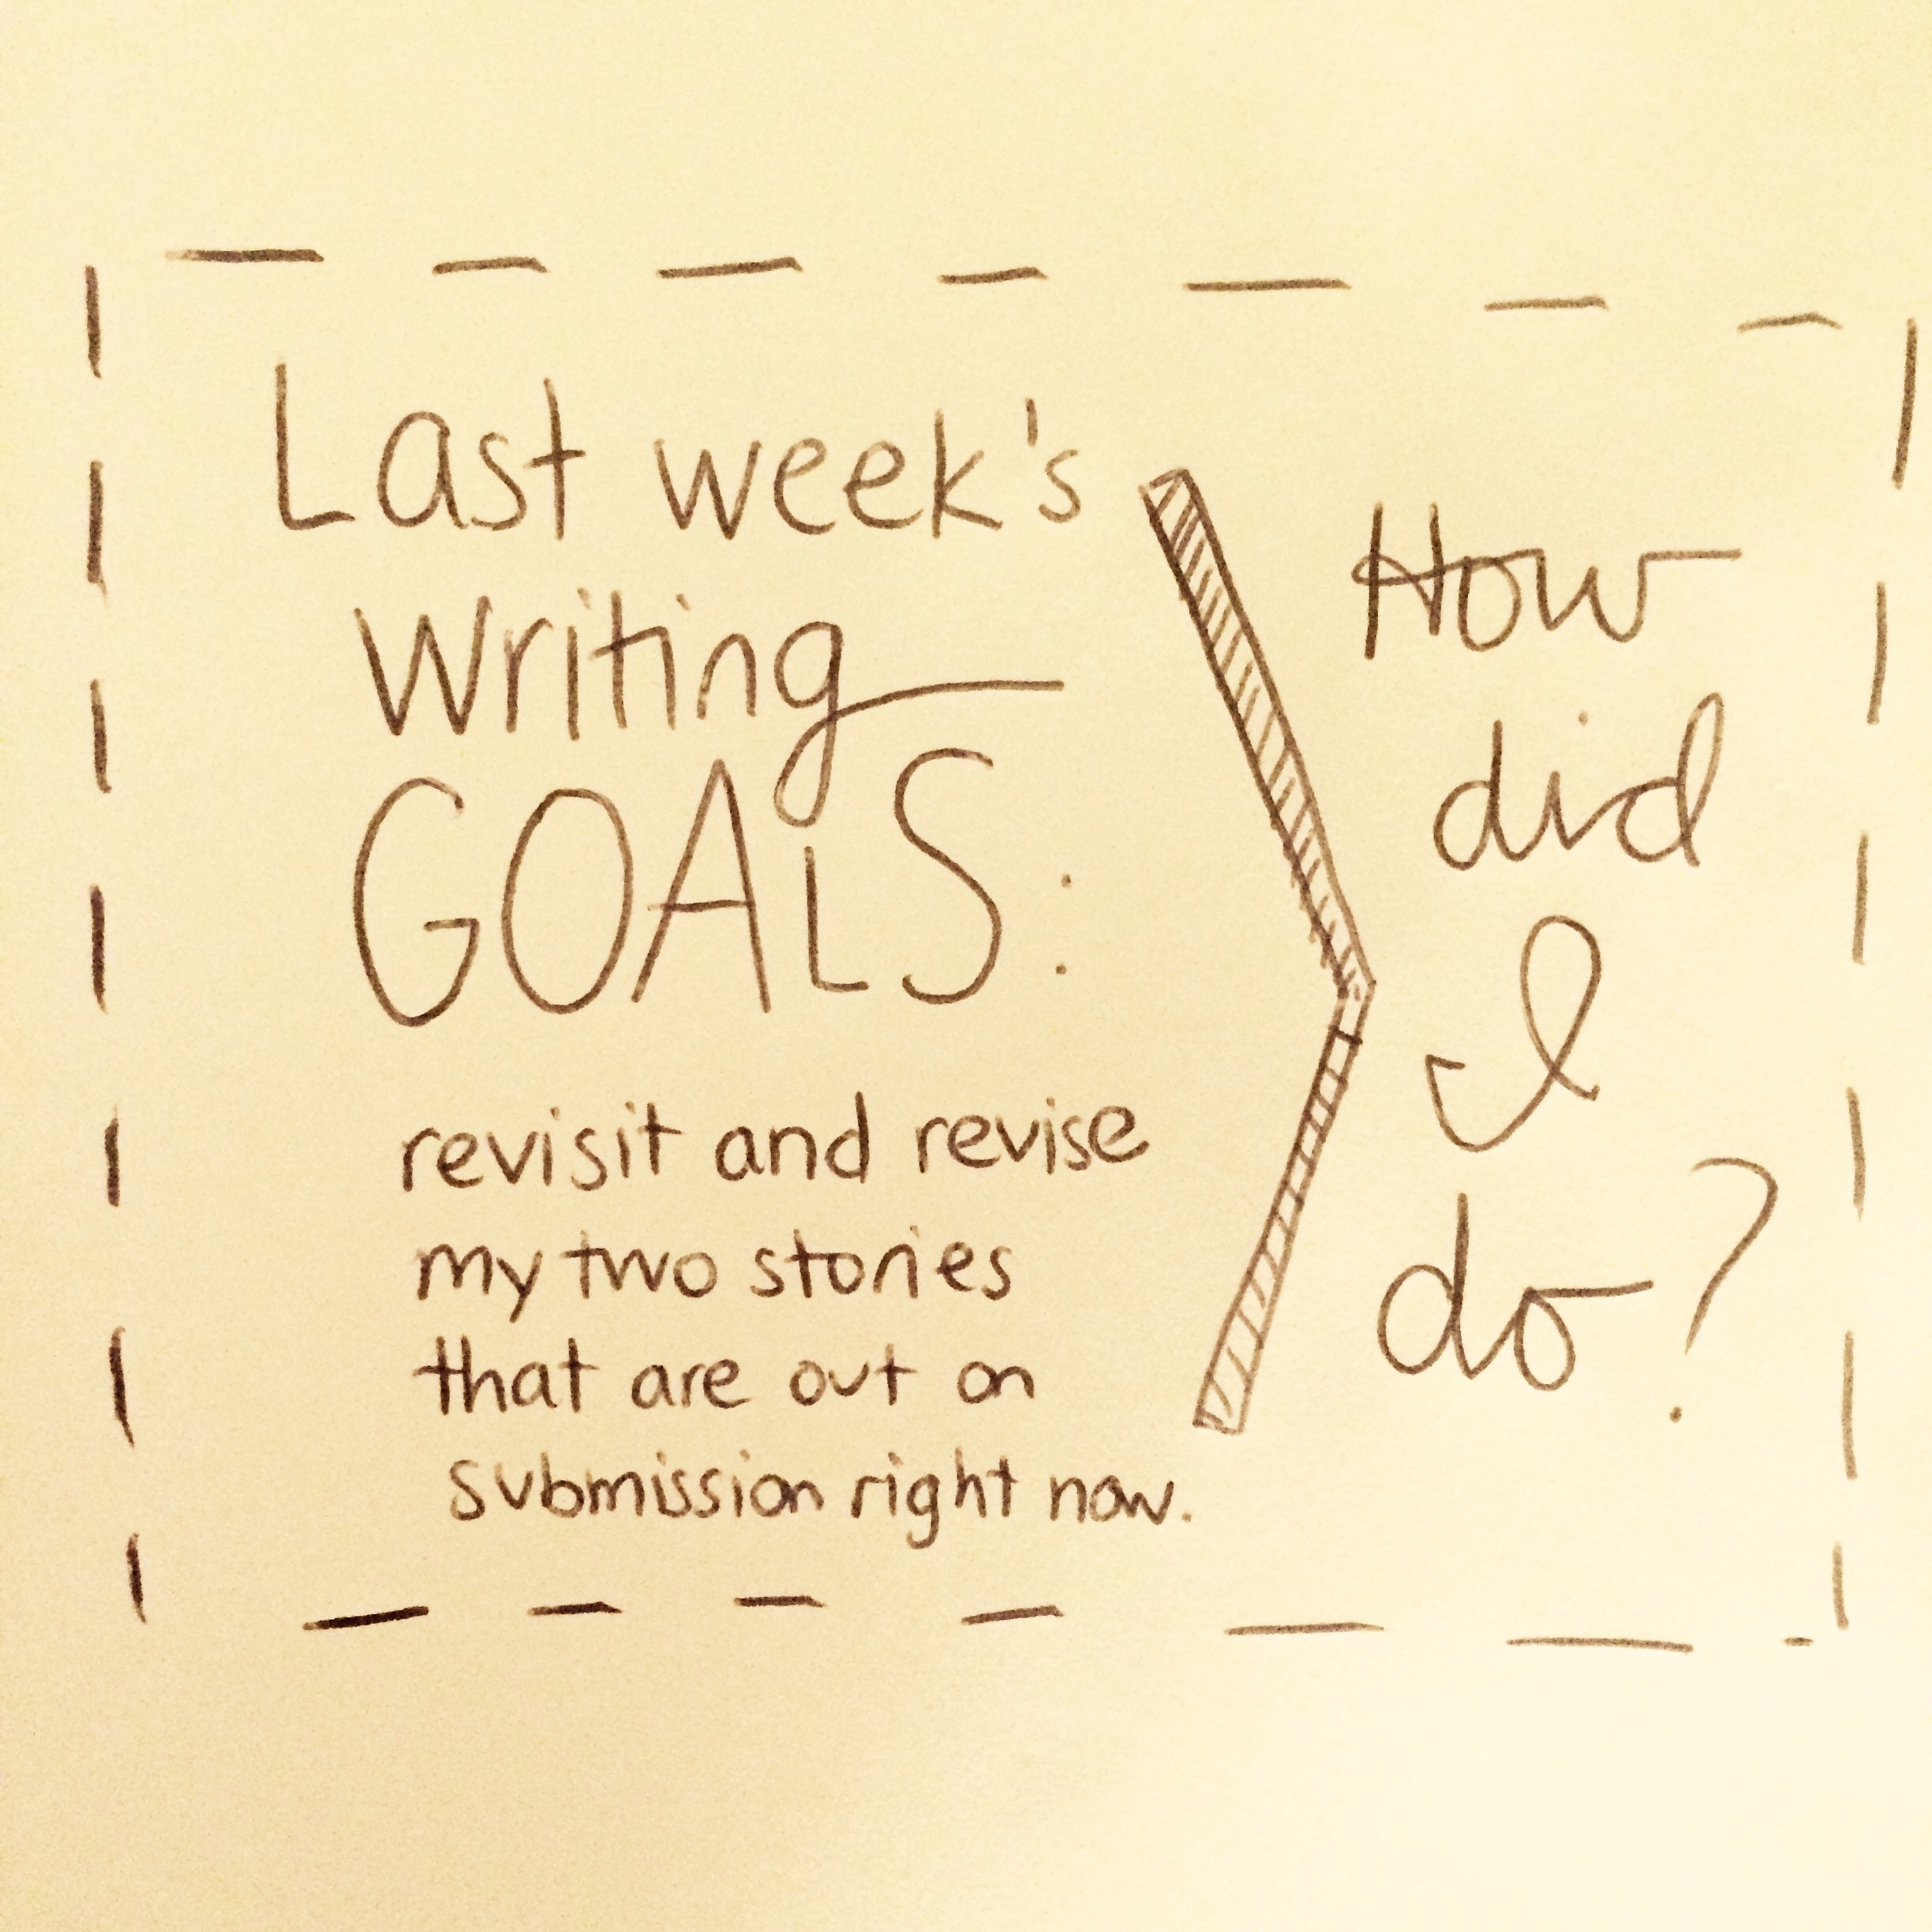 Last week's
Writing
GOALS:
revisit and revise
my two stories
that are out on
submission right now.
How
did
I
do?